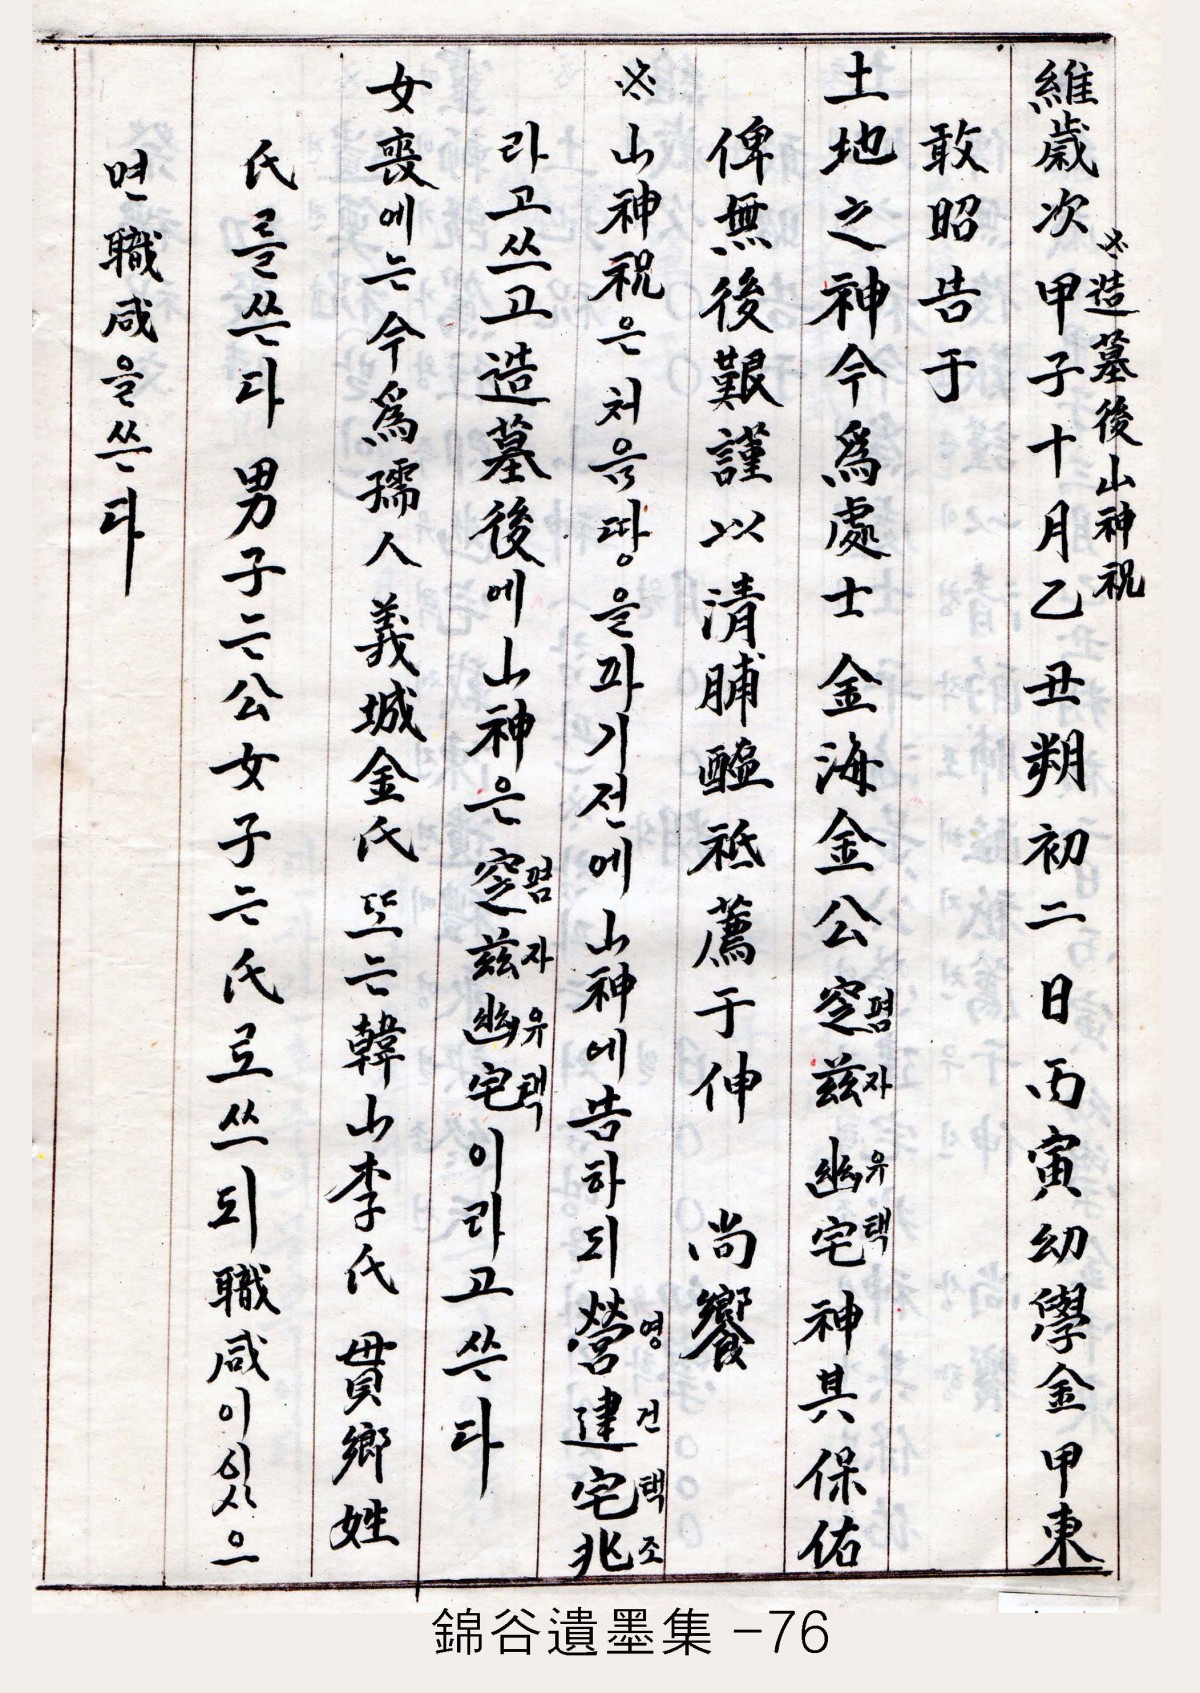 ※造墓後山神祝
維歲次 甲子十月乙丑朔初二日丙寅幼學金甲東
敢昭告于
土地之神今爲處士 金海金公窆폄玆자幽유宅택神其保佑
俾無後艱謹以淸脯醯祗薦于伸 尙饗
※山神祝은처음땅을파기전에山神에告하되營영建건宅택兆조
라고쓰고造墓後에山神은窆폄玆자幽유宅택이라고쓴다
女喪에는今爲孺人 義城金氏 또는韓山李氏 貫鄕姓
氏를쓴다 男子는公女子는氏로쓰되職咸이있으
면職咸을쓴다
錦谷遺墨集 -76